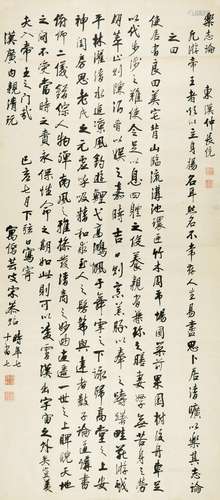 樂志論 東漢仲長統
凡游帝王者欲以立身揚名耳然名不常存人生易滅思卜居清曠以樂其志論
之曰
使居有良田美宅背山臨流溝池環帀竹木周布場圃築前果園樹後舟車足
以代步涉之難使令足以息四體之役養親有兼珍之膳妻孥無苦身之勞
良朋萃止則陳酒肴以娛之嘉時吉日則烹羔豚以奉之躊躇畦苑游戲
平林濯清水追涼風釣游鯉弋高鴻風乎舞雩之下詠歸高堂之上安
神閨房思老氏之玄虛呼吸精和求至人之彷彿與達者數子論道講書
俯仰二儀錯綜人物彈南風之雅操發清商之妙曲逍遙一世之上睥睨天地
之間不受當時之責永保性命之期如此則可以凌霄漢出宇宙之外矣豈羨
夫入帝王之門哉 己亥七月下弦日寫寄
漢廣內親清玩
芸史宋恭貽 時年七
十有七